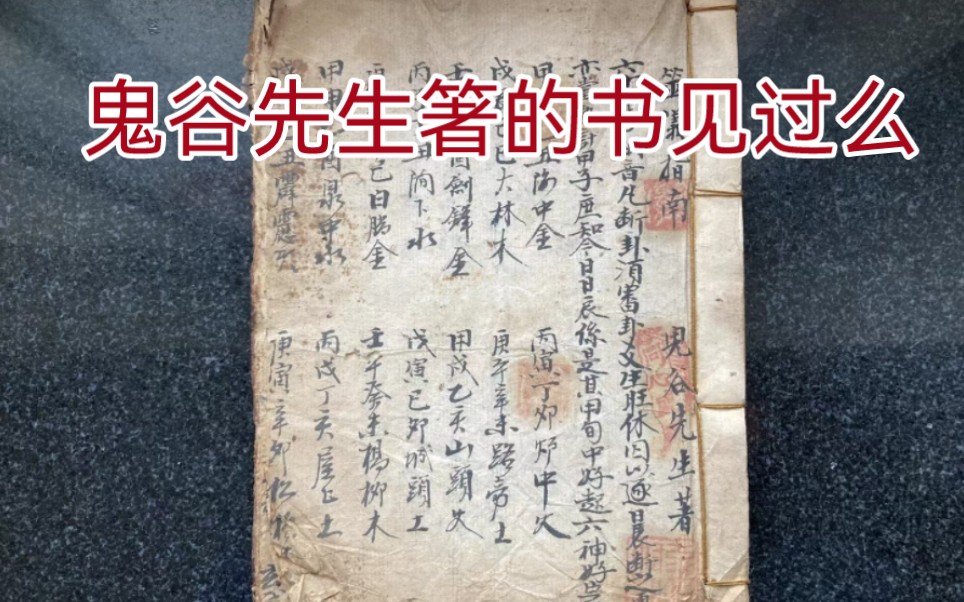 鬼谷先生箸的书见过么
指南 鬼谷先生著
音凡断卦須審卦爻生旺休囚以逐日晨断
甲子庶知今日日辰係是某甲旬中好起六神好
甲 海中金 丙寅丁卯炉中火
戊 巳大林木 庚午辛未路旁土
壬 酉劍鋒金 甲戌乙亥山頭火
丙 丑澗下水 戊寅己卯城頭土
巳白腊金 壬午癸未楊柳木
甲申 酉泉中水 丙戌丁亥屋上土
丑霹靂火 庚寅辛卯松柏